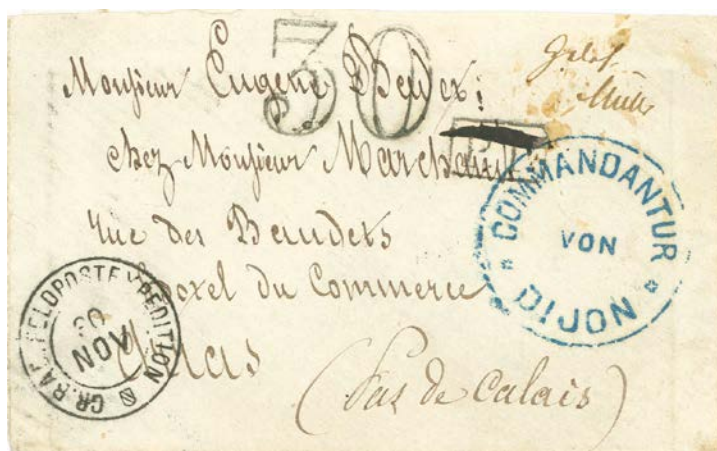 30
Monsieur Eugène
chez Monsieur Marchand
rue des Baudets
du Commerce
Arras
(Pas de Calais)
COMMANDANTUR
VON
DIJON
GR.BAD. FELDPOSTEXPEDITION
30
NOV